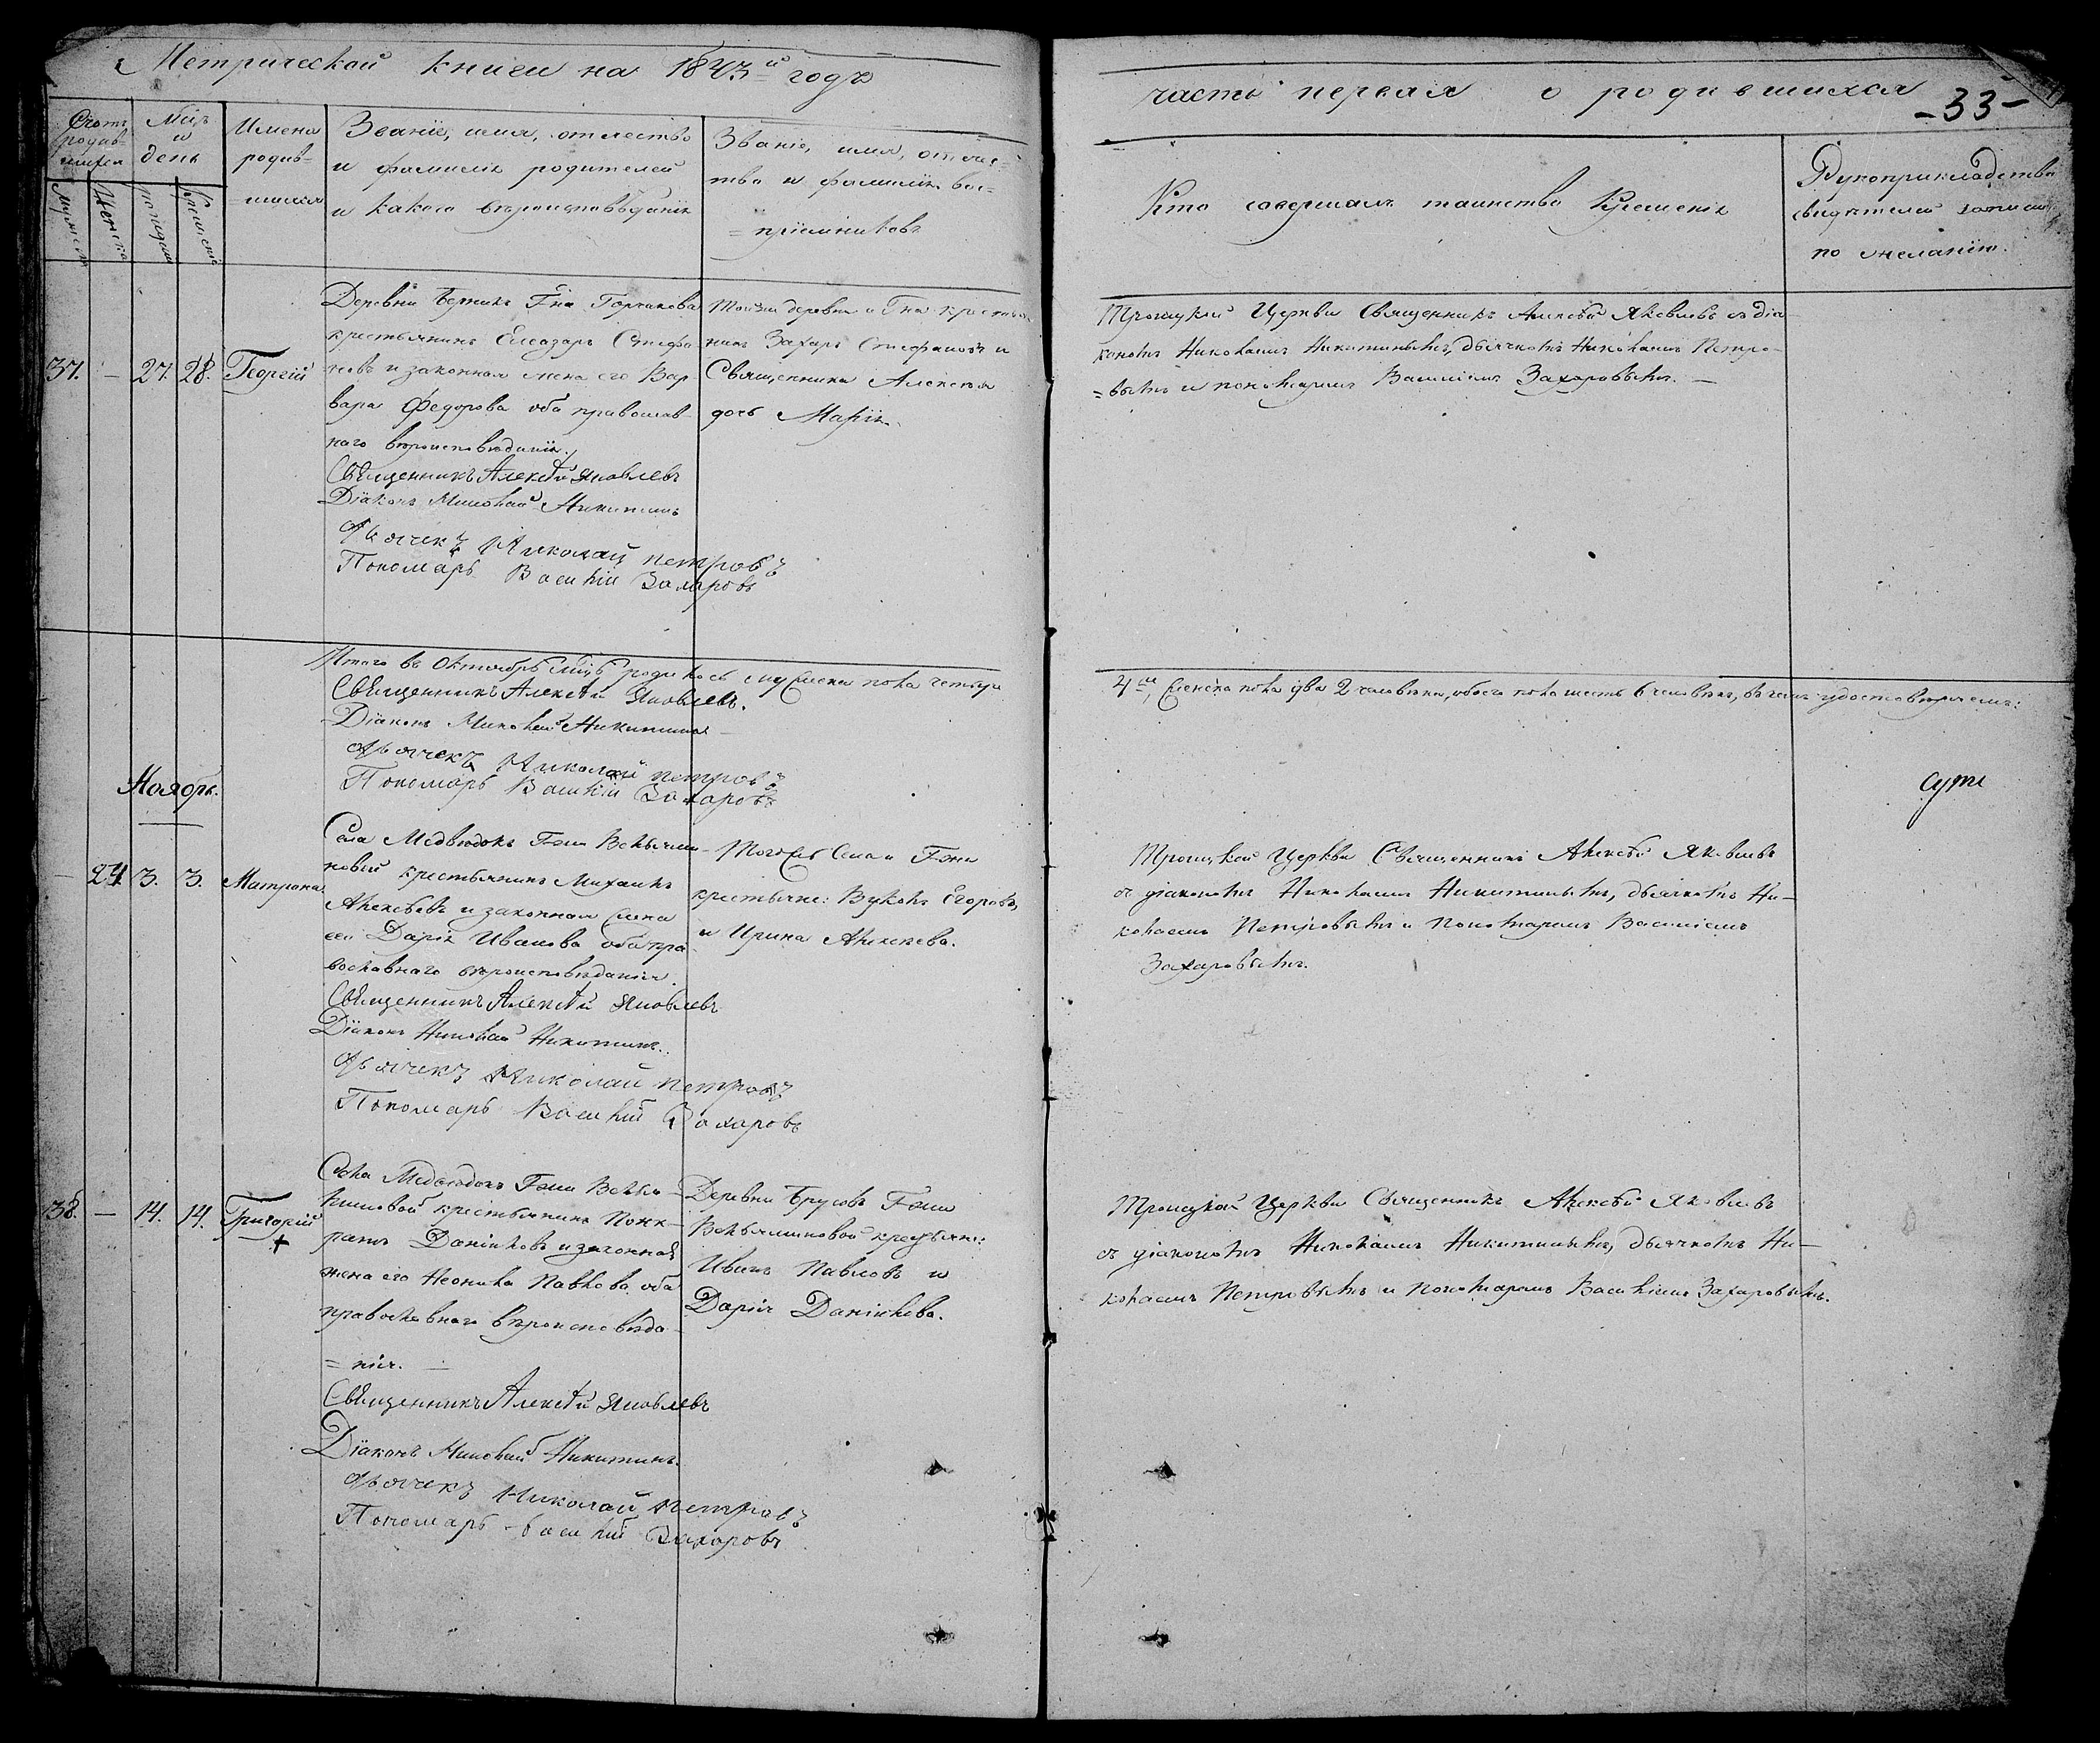 Метрической книги на 1843й годъ
часть первая о родившихся
-33-
Счотъ родив-шихся
Мужеска
Женска
Мцъ и день
рожденія
крещенія
Имена
родив-
шихся
Званіе, имя, отчество
и фамилія родителей
и какого вѣроисповѣданія
Званіе, имя, отчес-
тво и фамилія вос-
=пріемниковъ
Кто совершалъ таинство Крещенія
Рукоприкладство
свидѣтелей записи
по желанію.
37. — 27. 28. Георгій
Деревни Гна Горчакова
крестьянинъ Елеазаръ Стефа
новъ и законная жена его Вар
вара Федорова оба православ-
наго вѣроисповѣданія.
Священникъ Алексѣй Яковлевъ
Діаконъ Николай Никитинъ
Дьячекъ Николай Петровъ
Пономарь Василій Захаровъ
Тойже деревни и Гна кресть
нинъ Захаръ Стефановъ и
Священника Алексѣя
дочь Марія.
Троицкой Церкви Священникъ Алексѣй Яковлевъ съ діа-
кономъ Николаемъ Никитинымъ, дьячкомъ Николаемъ Петро-
=вымъ и пономаремъ Василіемъ Захаровымъ. —
Итого въ Октябрѣ мцѣ родилось мужеска пола четыре
4ре, женска пола два 2 человѣка, обоего пола шесть 6 человѣкъ, въ чемъ удостовѣряемъ:
Священникъ Алексѣй Яковлевъ.
Діаконъ Николай Никитинъ
Дьячекъ Николай Петровъ
Пономарь Василій Захаровъ
Ноябрь.
— 24. 3. 3. Матрона
Села Медвѣдокъ Гжи Вельями-
новой крестьянинъ Михаилъ
Алексѣевъ и законная жена
его Дарія Иванова оба пра-
вославнаго вѣроисповѣданія.
Священникъ Алексѣй Яковлевъ
Діаконъ Николай Никитинъ.
Дьячекъ Николай Петровъ
Пономарь Василій Захаровъ
Тогожъ Села и Гжи
крестьяне: Вуколъ Егоровъ,
и Ирина Алексѣева.
Троицкой Церкви Священникъ Алексѣй Яковлевъ
съ діакономъ Николаемъ Никитинымъ, дьячкомъ Ни-
колаемъ Петровымъ и Пономаремъ Василіемъ
Захаровымъ.
38. — 14. 14. Григорій
+
Села Медвѣдокъ Гжи Велья-
миновой крестьянинъ Панк-
ратъ Даніиловъ и законная
жена его Неонила Павлова, оба
православнаго вѣроисповѣда-
=нія. —
Священникъ Алексѣй Яковлевъ
Діаконъ Николай Никитинъ.
Дьячекъ Николай Петровъ
Пономарь Василій Захаровъ
Деревни Гжи
Вельяминовой крестьяне:
Иванъ Павловъ и
Дарія Даніилова.
Троицкой Церкви Священникъ Алексѣй Яковлевъ
съ діакономъ Николаемъ Никитинымъ, дьячкомъ Ни-
колаемъ Петровымъ и Пономаремъ Василіемъ Захаровымъ.